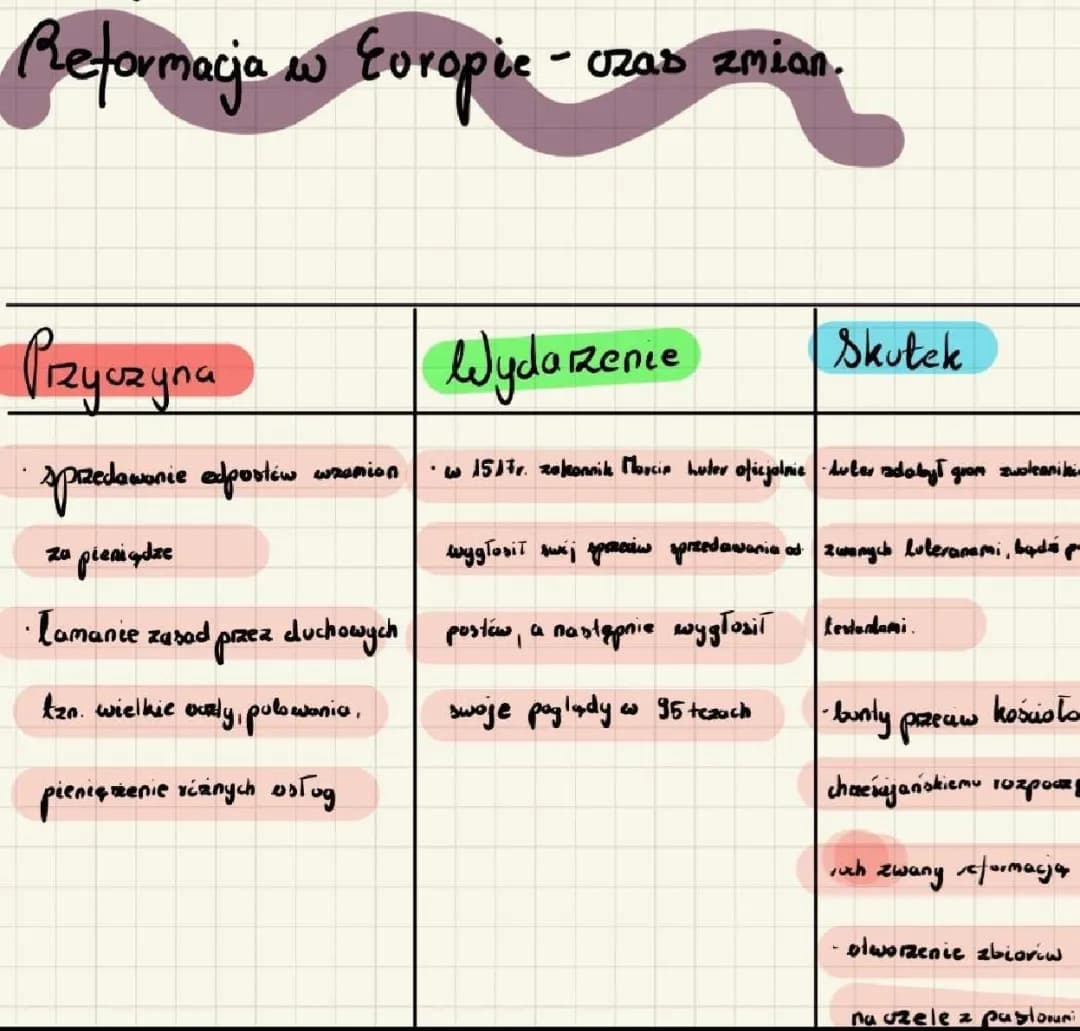 Reformacja w Europie - czas zmian.
Przyczyna
· sprzedawanie odpustów wzamian
za pieniądze
· łamanie zasad przez duchowych
tzn. wielkie uczty, polowania,
pieniężenie różnych usług
Wydarzenie
· w 1517r. zakonnik Marcin Luter oficjalnie
wygłosił swój sprzeciw sprzedawania od
pustów, a następnie wygłosił
swoje poglądy w 95 tezach
Skutek
· Luter zdobył gron
zwanych luteranami, bądź
testantami.
· bunty przeciw
chrześcijańskiemu
ruch zwany reformacją
· otworzenie zbiorów
na czele z pastorami